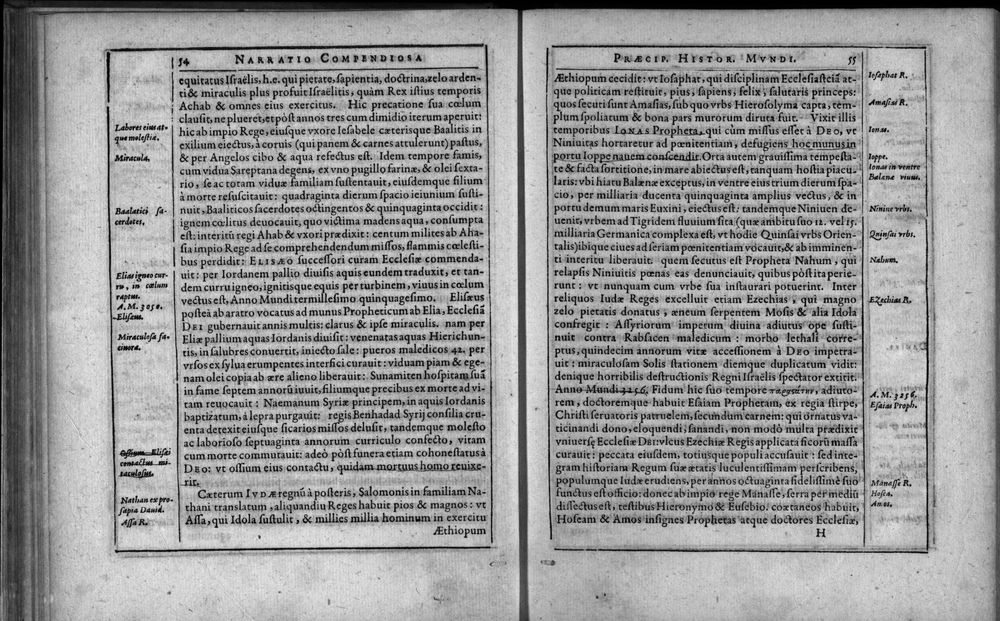 54 NARRATIO COMPENDIOSA
equitatus Israëlis, h.e. qui pietate, sapientia, doctrina, zelo arden-
ti & miraculis plus profuit Israëlitis, quàm Rex istius temporis
Achab & omnes eius exercitus. Hic precatione sua cœlum
clausit, ne plueret, et pòst annos tres cum dimidio iterum aperuit:
hic ab impio Rege, eiusque vxore Iesabele cæterisque Baalitis in
exilium eiectus, à coruis (qui panem & carnes attulerunt) pastus,
& per Angelos cibo & aqua refectus est. Idem tempore famis,
cum vidua Sareptana degens, ex vno pugillo farinæ, & olei sexta-
rio, se ac totam viduæ familiam sustentauit, eiusdemque filium
à morte resuscitauit: quadraginta dierum spacio ieiunium susti-
nuit, Baaliticos sacerdotes octingentos & quinquaginta occidit:
ignem cœlitus deuocauit, quo victima madens aqua, consumpta
est: interitū regi Ahab & vxori prædixit: centum milites ab Aha-
sia impio Rege ad se comprehendendum missos, flammis cœlesti-
bus perdidit: ELISÆO successori curam Ecclesiæ commenda-
uit: per Iordanem pallio diuisis aquis eundem traduxit, et tan-
dem curru igneo, ignitisque equis per turbinem, viuus in cœlum
vectus est, Anno Mundi ter millesimo quinquagesimo. Elisæus
postea ab aratro vocatus ad munus Propheticum ab Elia, Ecclesiā
DEI gubernauit annis multis: clarus & ipse miraculis. nam per
Eliæ pallium aquas Iordanis diuisit: venenatas aquas Hierichun-
tis, in salubres conuertit, iniecto sale: pueros maledicos 42. per
vrsos ex sylua erumpentes interfici curauit: viduam piam & ege-
nam olei copia ab ære alieno liberauit: Sunamiten hospitam suā
in fame septem annorū iuuit, filiumque precibus ex morte ad vi-
tam reuocauit: Naemanum Syriæ principem, in aquis Iordanis
baptizatum, à lepra purgauit: regis Benhadad Syrij consilia cru-
enta detexit eiusque sicarios missos delusit, tandemque molesto
ac laborioso septuaginta annorum curriculo confecto, vitam
cum morte commutauit: adeò pòst funera etiam cohonestatus à
DEO: vt ossium eius contactu, quidam mortuus homo reuixe-
rit.
Cæterum IVDÆ regnū à posteris, Salomonis in familiam Na-
thani translatum, aliquandiu Reges habuit pios & magnos: vt
Assa, qui Idola sustulit, & millies millia hominum in exercitu
Æthiopum
Labores eius at-
que molestiæ.
Miracula.
Baalatici sa-
cerdotes.
Elias igneo cur-
ru, in cœlum
raptus.
A. M. 3050.
Elisæus.
Miraculosa fa-
cinora.
Ossium Elisæi
contactus mi-
raculosus.
Nathan ex pro-
sapia Dauid.
Assa R.
PRÆCIP. HISTOR. MVNDI. 55
Æthiopum cecidit: vt Iosaphat, qui disciplinam Ecclesiasticā at-
que politicam restituit, pius, sapiens, felix, salutaris princeps:
quos secuti sunt Amasias, sub quo vrbs Hierosolyma capta, tem-
plum spoliatum & bona pars murorum diruta fuit. Vixit illis
temporibus IONAS Propheta, qui cùm missus esset à DEO, vt
Niniuitas hortaretur ad pœnitentiam, defugiens hoc munus in
portu Ioppe nauem conscendit. Orta autem grauissima tempesta-
te & facta sortitione, in mare abiectus est, tanquam hostia piacu-
laris: vbi hiatu Balænæ exceptus, in ventre eius trium dierum spa-
cio, per milliaria ducenta quinquaginta amplius vectus, & in
portu demum maris Euxini, eiectus est: tandemque Niniuen de-
uenit, vrbem ad Tigridem fluuium sitā (quæ ambitu suo 12. vel 15.
milliaria Germanica complexa est, vt hodie Quinsai vrbs Orien-
talis) ibique ciues ad seriam pœnitentiam vocauit, & ab imminen-
ti interitu liberauit. quem secutus est Propheta Nahum, qui
relapsis Niniuitis pœnas eas denunciauit, quibus pòst ita perie-
runt: vt nunquam cum vrbe sua instaurari potuerint. Inter
reliquos Iudæ Reges excelluit etiam Ezechias, qui magno
zelo pietatis donatus, æneum serpentem Mosis & alia Idola
confregit: Assyriorum imperum diuina adiutus ope susti-
nuit contra Rabsacen maledicum: morbo lethali corre-
ptus, quindecim annorum vitæ accessionem à DEO impetra-
uit: miraculosam Solis stationem diemque duplicatum vidit:
denique horribilis destructionis Regni Israëlis spectator extitit.
Anno Mundi 3256. Fidum hic suo tempore adiuto-
rem, doctoremque habuit Esaiam Prophetam, ex regia stirpe,
Christi seruatoris patruelem, secundum carnem: qui ornatus va-
ticinandi dono, eloquendi, sanandi, non modò multa prædixit
vniuersæ Ecclesiæ DEI: vlcus Ezechiæ Regis applicata ficorū massa
curauit: peccata eiusdem, totiusque populi accusauit: sed inte-
gram historiam Regum suæ ætatis luculentissimam perscribens,
populumque Iudæ erudiens, per annos octuaginta fidelissimè suo
functus est officio: donec ab impio rege Manasse, serra per mediū
dissectus est, testibus Hieronymo & Eusebio. coætaneos habuit,
Hoseam & Amos insignes Prophetas atque doctores Ecclesiæ,
H
Iosaphat R.
Amasias R.
Ionas.
Ioppe.
Ionas in ventre
Balænæ viuus.
Niniue vrbs.
Quinsai vrbs.
Nahum.
Ezechias R.
A. M. 3256.
Esaias Proph.
Manasse R.
Hosea.
Amos.